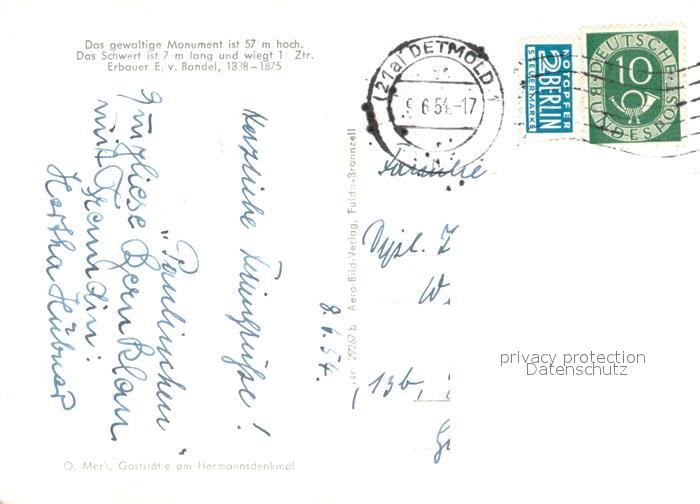 Das gewaltige Monument ist 57 m hoch.
Das Schwert ist 7 m lang und wiegt 11 Ztr.
Erbauer E. v. Bandel, 1838–1875
Herzliche Feriengrüße!
"Paulinchen"
mit Freundin:
Hertha Hübner
8.6.54.
O. Mert, Gaststätte am Hermannsdenkmal
Nr. 29267 b Aero-Bild-Verlag, Fulda-Bronnzell
(21a) DETMOLD 1
9.6.54.-17
NOTOPFER
2 BERLIN
STEUERMARKE
DEUTSCHE
BUNDESPOST
10
Familie
Dipl. I
W
(13b,
privacy protection
Datenschutz